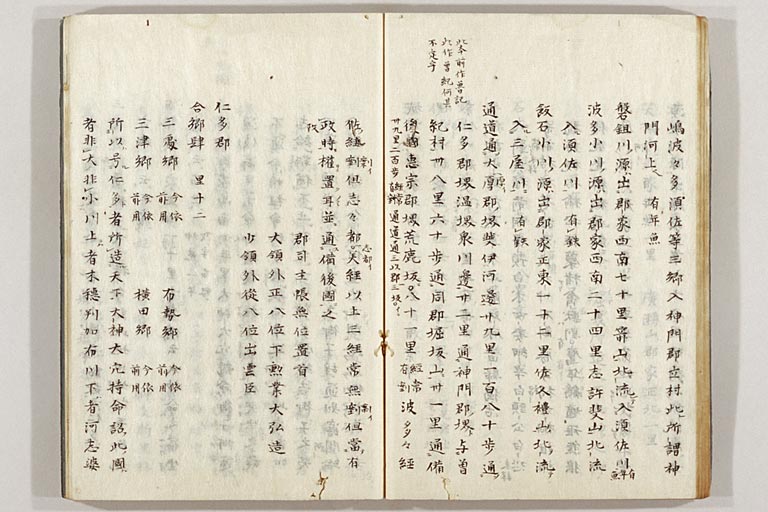 嶋波々多須佐等三郷入神門郡立村此所謂神
門河上有年魚
磐鉏川源出郡家西南七十里箭山北流入須佐川有年魚
波多小川源出郡家西南二十四里志許斐山北流
入須佐川有鉄
飯石小川源出郡家正東一十二里佐久禮山北流
入三屋川有鉄
通道通大原郡堺斐伊河邊廿九里一百八十歩通
仁多郡堺温泉川邊廿二里通神門郡堺与曽
紀村廿八里六十歩通同郡堀坂山廿一里通備
後國恵宗郡堺荒鹿坂八十一里経常有剗波多々経
卅九里二百歩
此本前作曽記
此作曽紀何是
不定乎
佐経剗但志々都美経以上三経常無剗但當有
政時權置耳並通備後國之
郡司主帳無位置首
大領外正八位下勲業大弘造
少領外従八位出雲臣
仁多郡
合郷肆 里十二
三處郷 今依前用 布勢郷 今依前用
三津郷 今依前用 横田郷 今依前用
所以号仁多者所造天下大神大穴持命詔此國
者非大非小川上者木穂刺加布川下者河志婆